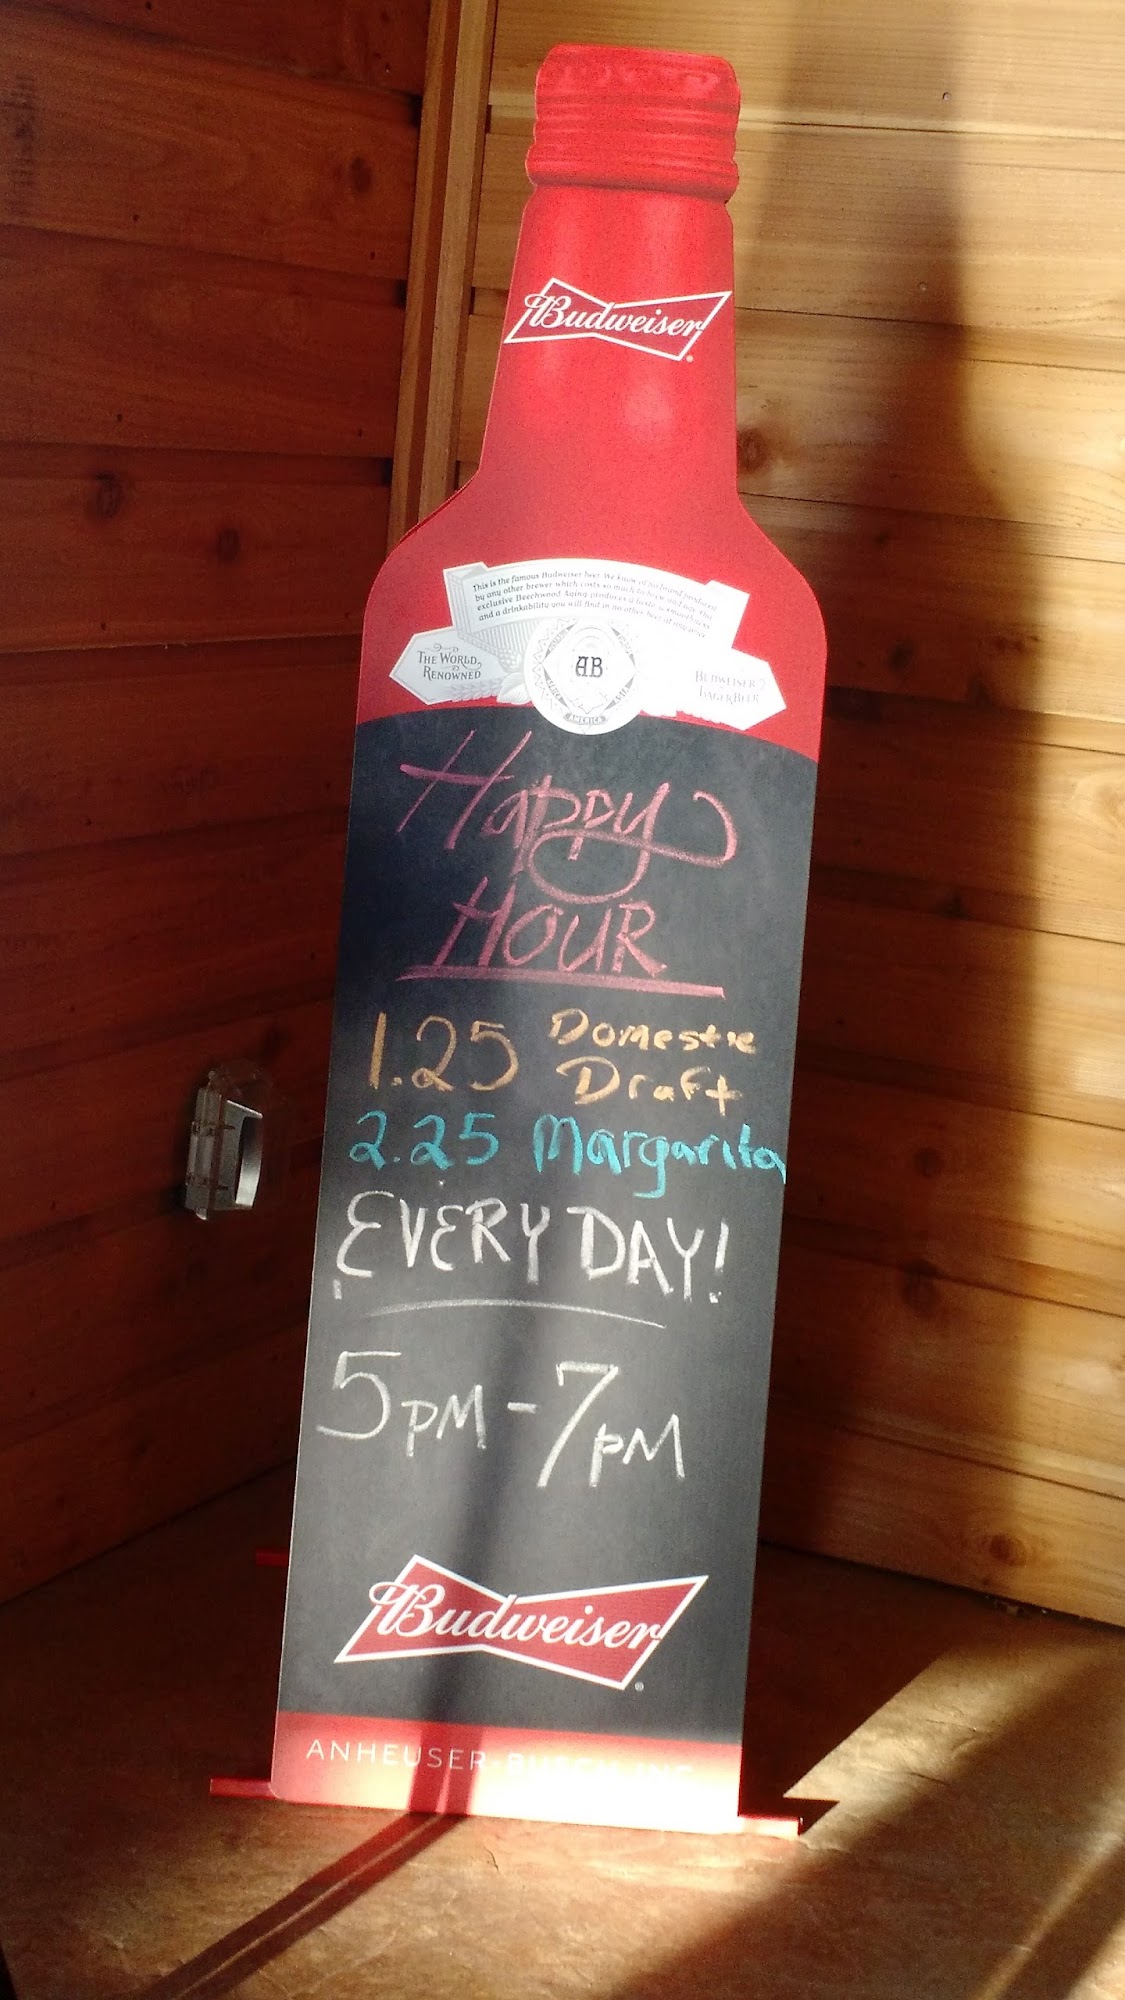 Budweiser
This is the famous Budweiser beer. We know of no brand produced
by any other brewer which costs so much to brew and age. Our
exclusive Beechwood Aging produces a taste, a smoothness
and a drinkability you will find in no other beer at any price.
THE WORLD
RENOWNED
AB
AMERICA
BUDWEISER
LAGER BEER
Happy
HOUR
1.25 Domestic
Draft
2.25 Margarita
EVERY DAY!
5PM-7PM
Budweiser
ANHEUSER-BUSCH, INC.